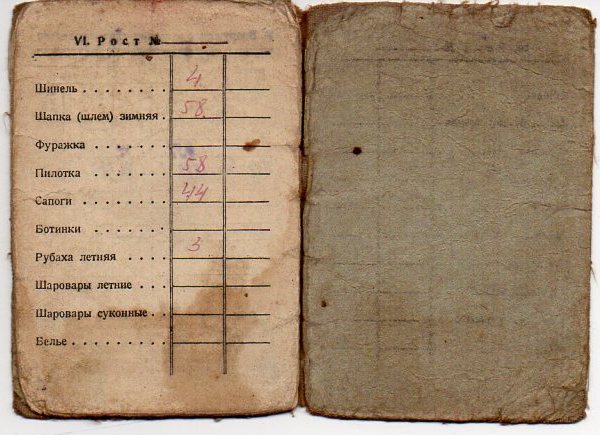 VI. Рост №
Шинель . . . . . . . . 4
Шапка (шлем) зимняя . 58
Фуражка . . . . . . .
Пилотка . . . . . . . 58
Сапоги . . . . . . . . 44
Ботинки . . . . . . .
Рубаха летняя . . . . 3
Шаровары летние . . .
Шаровары суконные . .
Белье . . . . . . . . .